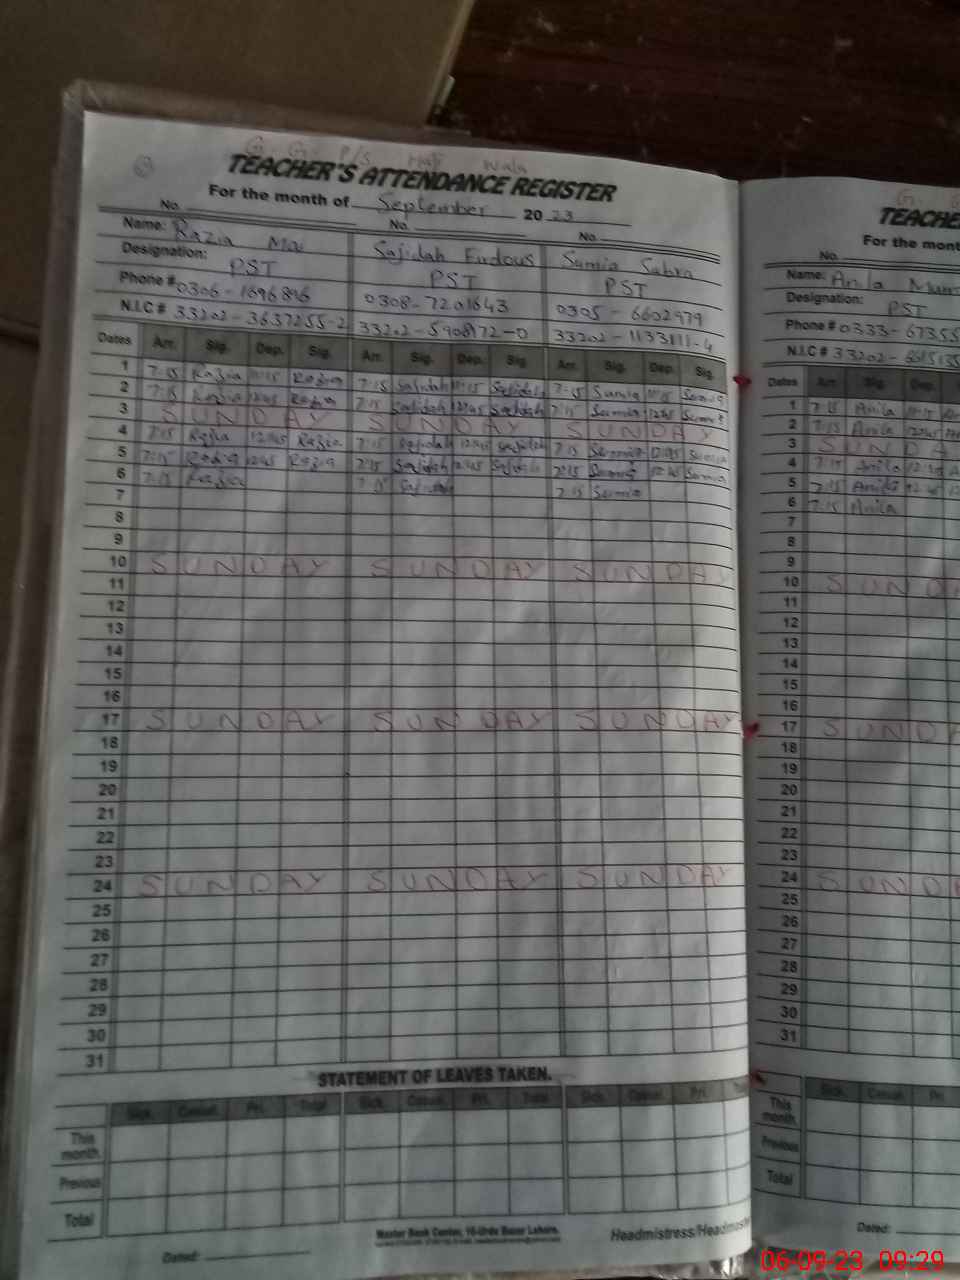 G. G. P/S Wala
TEACHER'S ATTENDANCE REGISTER
For the month of September 2023
No. No. No.
Name: Razia Mai Sajidah Firdous Samia Sabra
Designation: PST PST PST
Phone # 0306-1696896 0308-7201643 0305-6602979
N.I.C # 33202-3637255-2 33202-5908172-0 33202-1133111-4
Dates Arr. Sig. Dep. Sig. Arr. Sig. Dep. Sig. Arr. Sig. Dep. Sig.
1 7:15 Razia 11:15 Razia 7:15 Sajidah 11:15 Sajidah 7:15 Samia 11:15 Samia
2 7:15 Razia 12:45 Razia 7:15 Sajidah 12:45 Sajidah 7:15 Samia 12:45 Samia
3 SUNDAY SUNDAY SUNDAY
4 7:15 Razia 12:45 Razia 7:15 Sajidah 12:45 Sajidah 7:15 Samia 12:45 Samia
5 7:15 Razia 12:45 Razia 7:15 Sajidah 12:45 Sajidah 7:15 Samia 12:45 Samia
6 7:15 Razia 7:15 Sajidah 7:15 Samia
7
8
9
10 SUNDAY SUNDAY SUNDAY
11
12
13
14
15
16
17 SUNDAY SUNDAY SUNDAY
18
19
20
21
22
23
24 SUNDAY SUNDAY SUNDAY
25
26
27
28
29
30
31
STATEMENT OF LEAVES TAKEN.
Sick. Casual. Pri. Total Sick. Casual. Pri. Total Sick. Casual. Pri.
This month.
Previous
Total
Master Book Center, 16-Urdu Bazar Lahore.
Headmistress/Headmaste
Dated:
G. G
TEACHE
For the mont
No.
Name: Anila
Designation: PST
Phone # 0333-6735
N.I.C # 33202-
Dates Arr. Sig. Dep.
1 7:15 Anila 11:15
2 7:15 Anila 12:45
3 SUNDA
4 7:15 Anila 12:45
5 7:15 Anila 12:45
6 7:15 Anila
7
8
9
10 SUND
11
12
13
14
15
16
17 SUND
18
19
20
21
22
23
24 SUND
25
26
27
28
29
30
31
Sick. Casual Pri
This month.
Previous
Total
Dated:
06-09-23 09:29